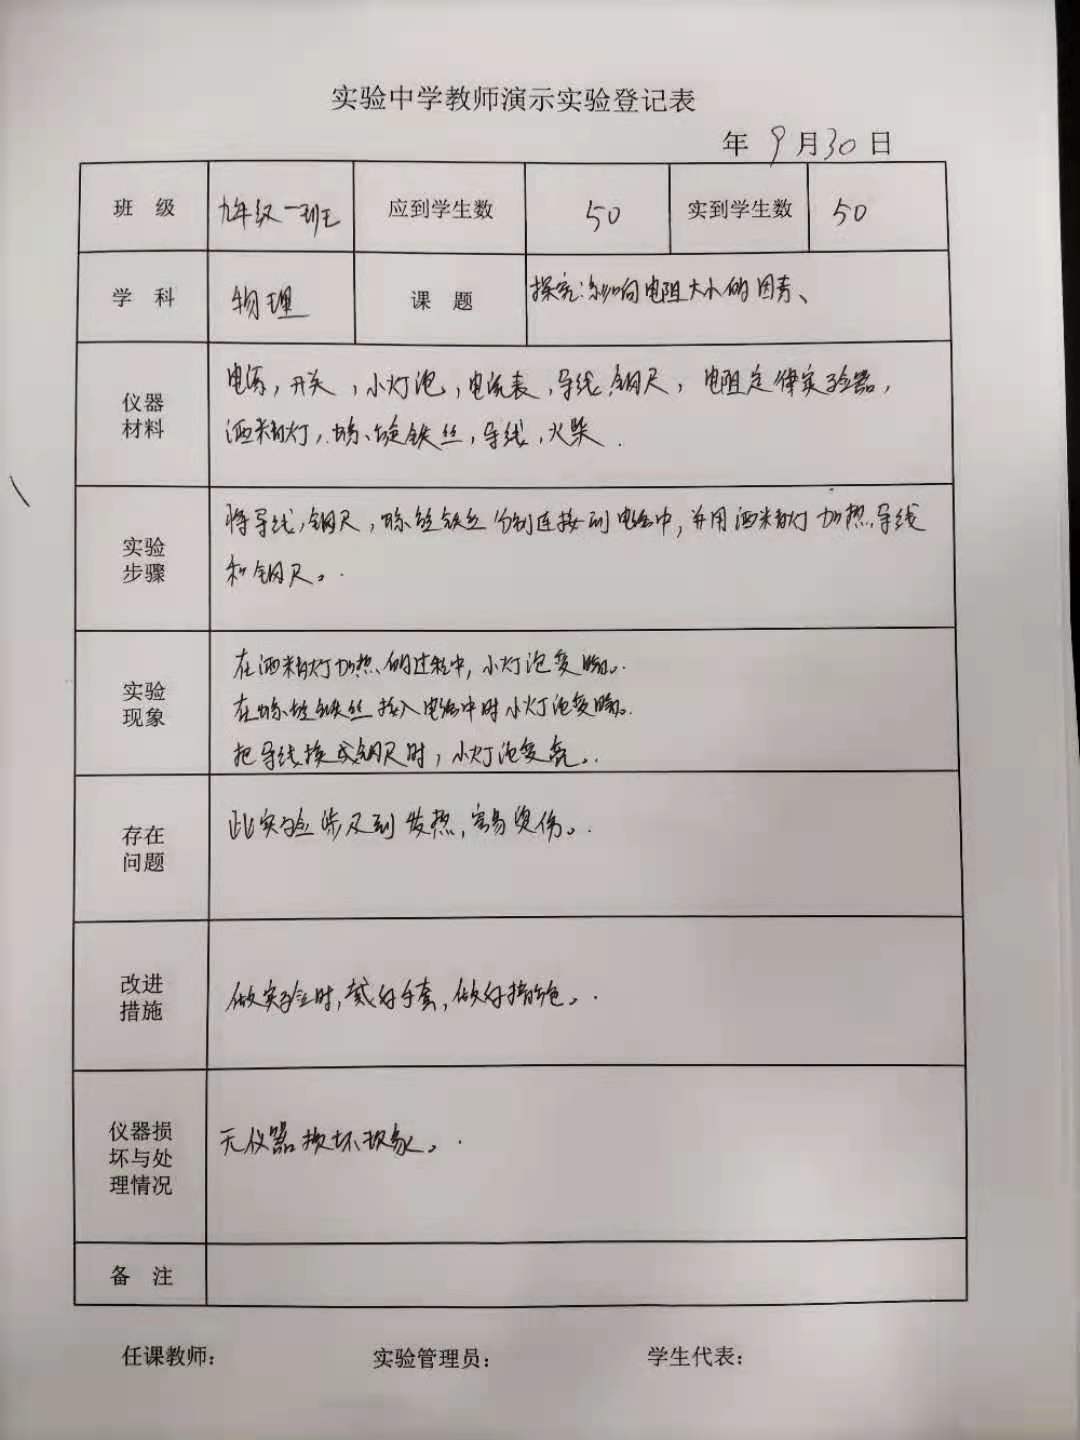 实验中学教师演示实验登记表
年 9月30日
班 级 九年级一班 应到学生数 50 实到学生数 50
学 科 物理 课 题 探究:影响电阻大小的因素、
仪器
材料
电源,开关,小灯泡,电流表,导线,钢尺,电阻定律实验器,
酒精灯,铁丝,导线,火柴.
实验
步骤
将导线,钢尺,铁丝分别连接到电路中,并用酒精灯加热导线
和钢尺。
实验
现象
在酒精灯加热的过程中,小灯泡变暗。
在铁丝接入电路中时小灯泡变暗。
把导线换成钢尺时,小灯泡变亮。
存在
问题
此实验涉及到发热,容易烫伤。
改进
措施
做实验时,戴好手套,做好措施。
仪器损
坏与处
理情况
无仪器损坏现象。
备 注
任课教师: 实验管理员: 学生代表: